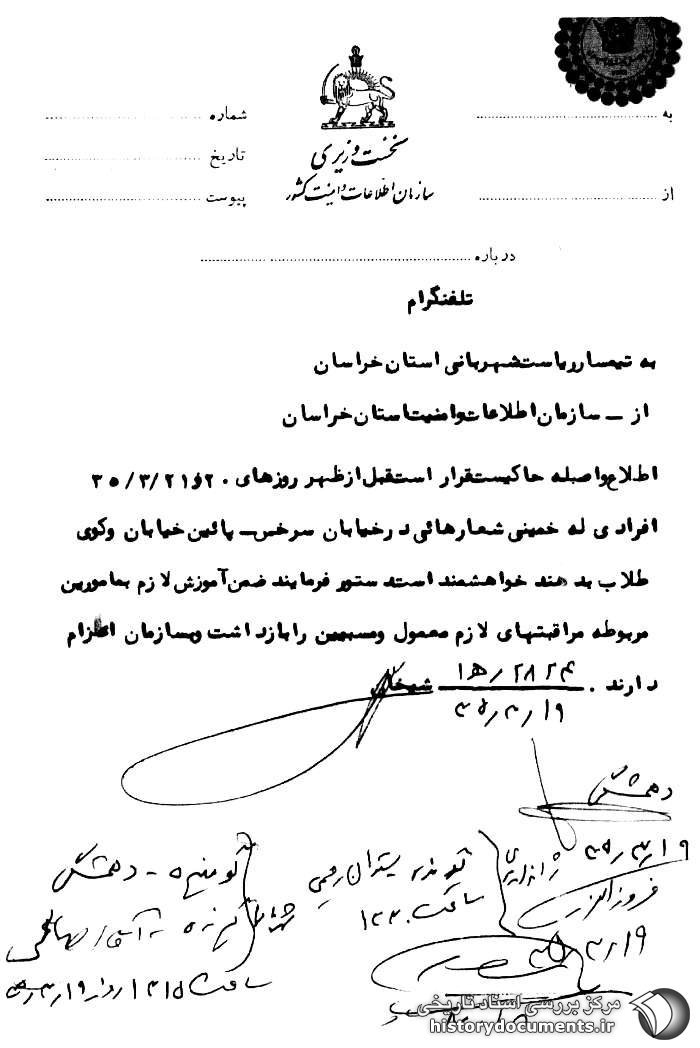 به
شماره
نخست وزیری
تاریخ
سازمان اطلاعات و امنیت کشور
از
پیوست
درباره
تلفنگرام
به تیمسار ریاست شهربانی استان خراسان
از – سازمان اطلاعات و امنیت استان خراسان
اطلاع واصله حاکیست قرار است قبل از ظهر روزهای ۲۰ و ۳۵/۳/۲۱
افرادی له خمینی شعارهائی در خیابان سرخس – پائین خیابان و کوی
طلاب بدهند خواهشمند است دستور فرمایند ضمن آموزش لازم بمامورین
مربوطه مراقبتهای لازم معمول و مسببین را بازداشت و بسازمان اعزام
دارند . ۲۸۲۴/ه۱ شیخان
۳۵/۳/۱۹
۳۵/۳/۱۹
گوینده - دهمشگی
ساعت ۱۳۳۰
۳۵/۳/۱۹
ساعت ۱۳۱۵ روز ۳۵/۳/۱۹
مرکز بررسی اسناد تاریخی
historydocuments.ir